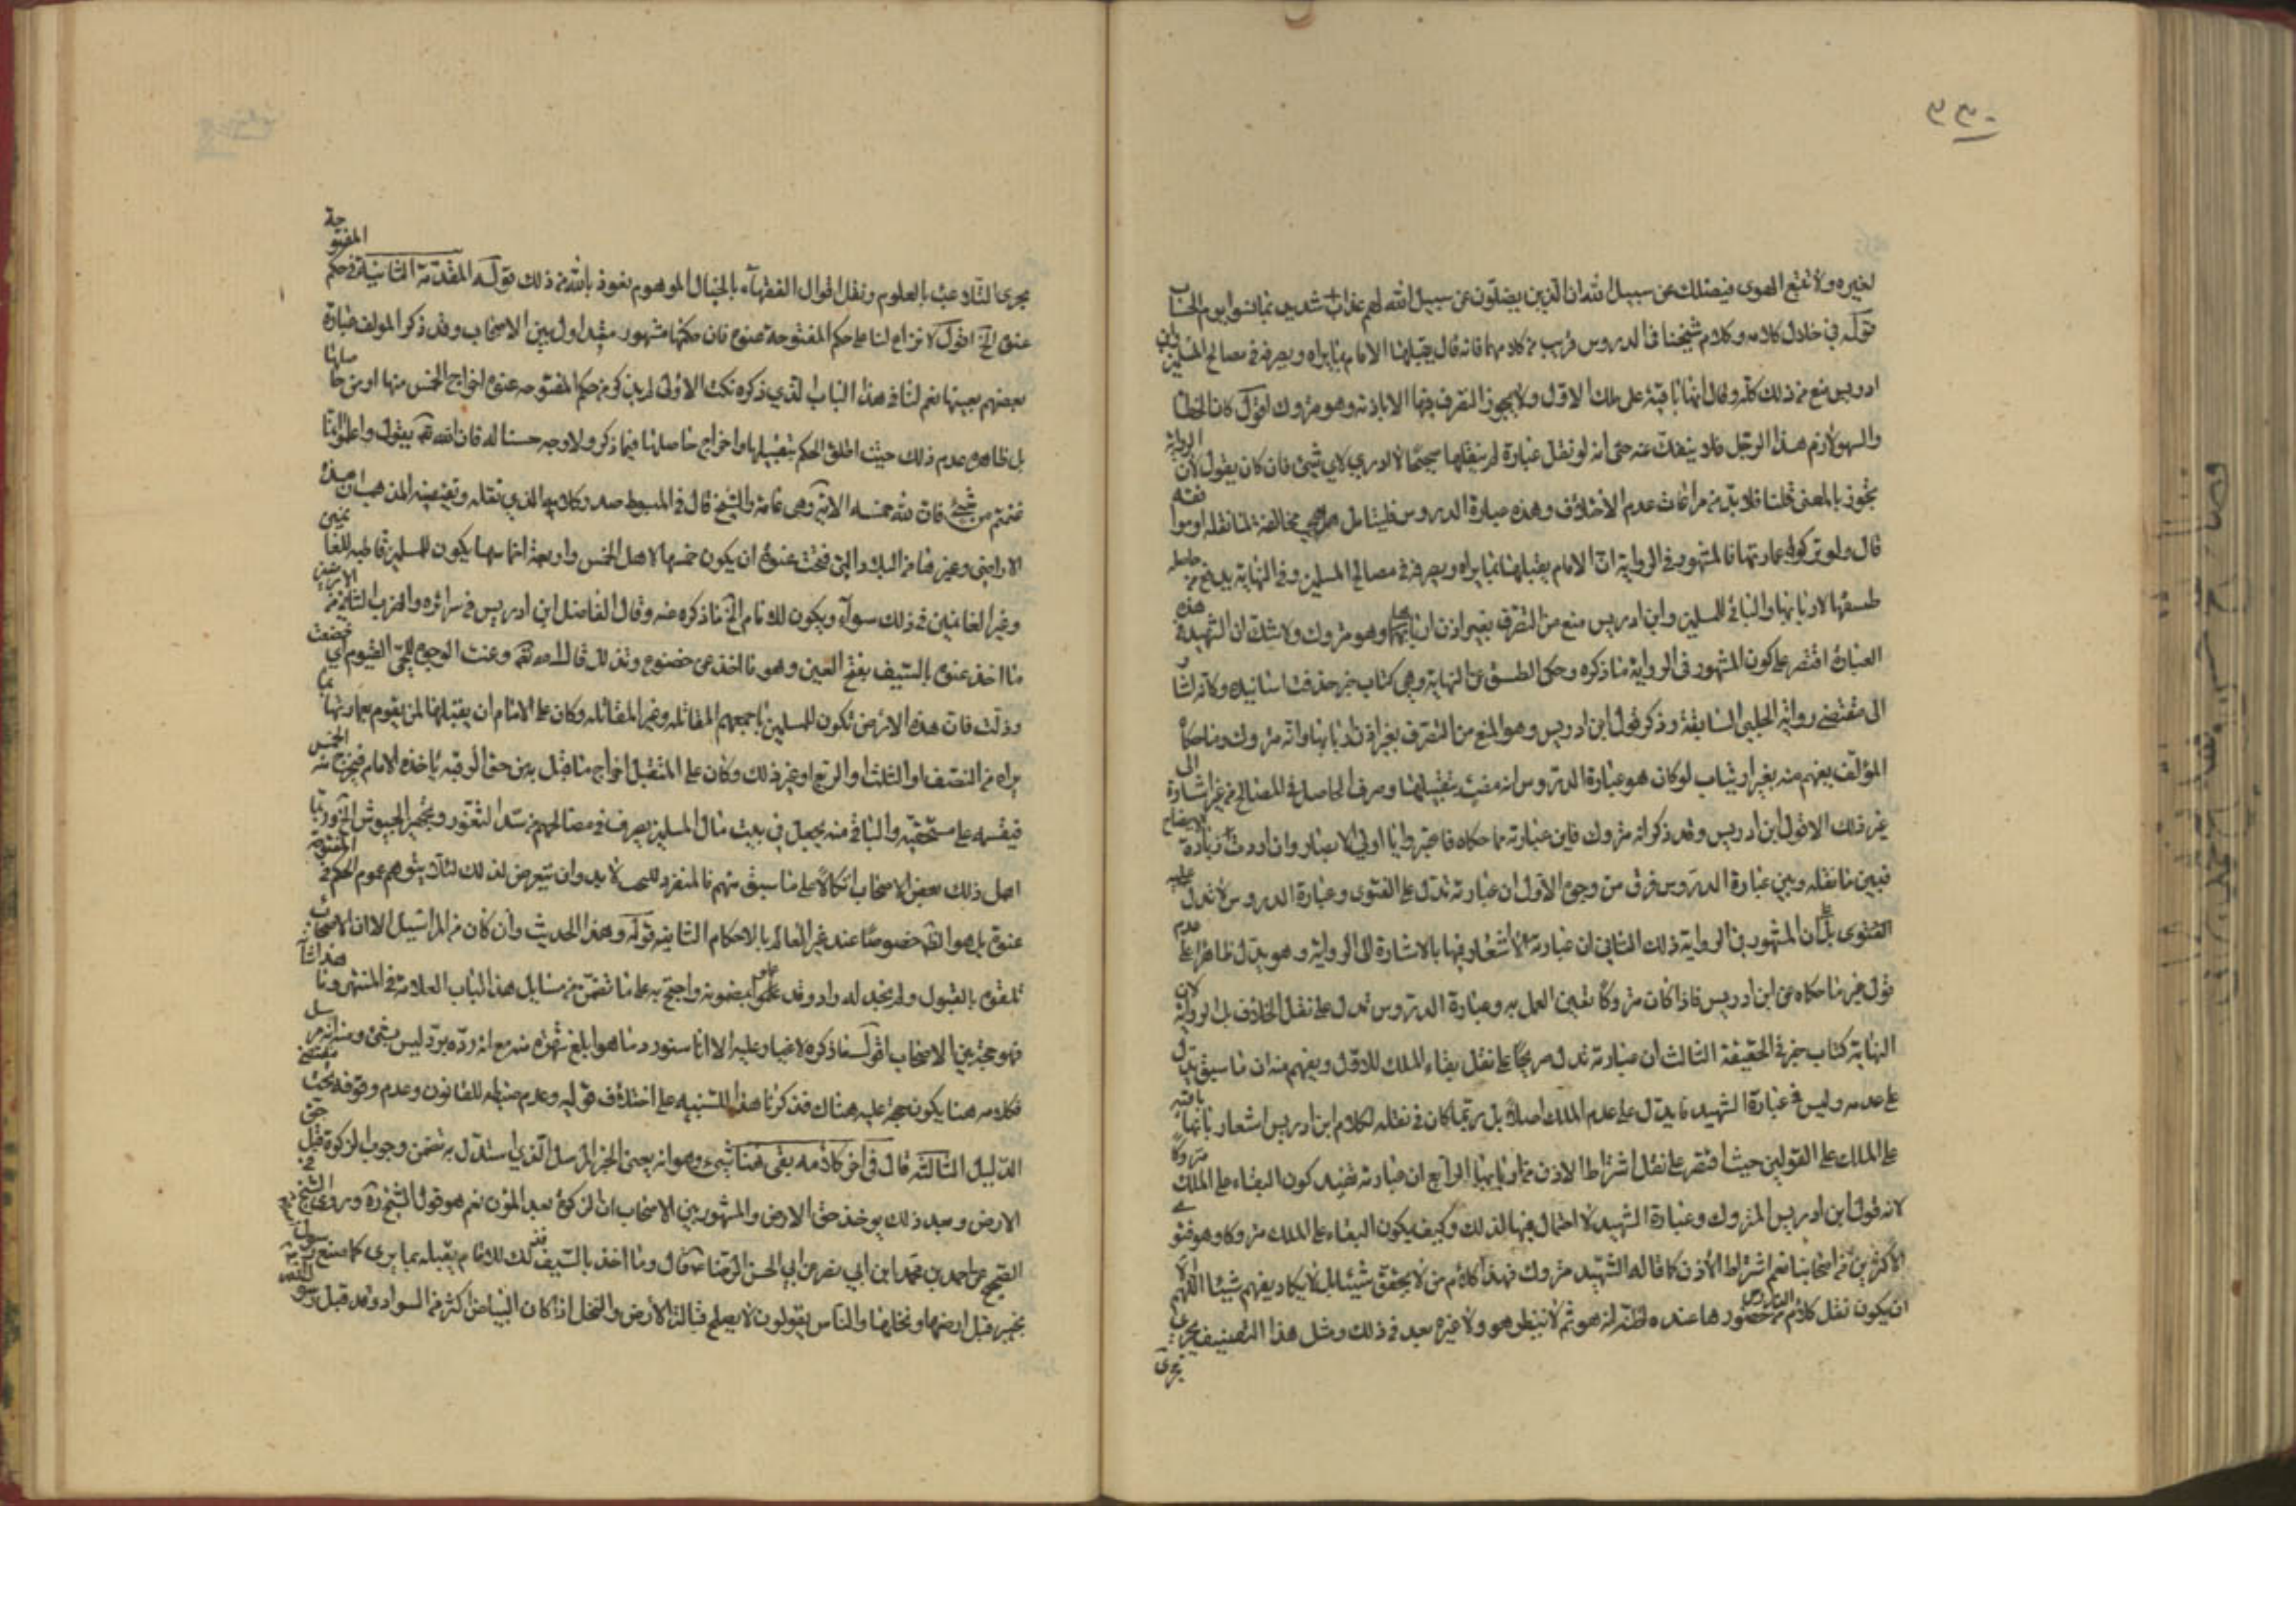 ٣٣٠
لغيره ولا تتبع الهوى فيضلك عن سبيل الله ان الذين يضلون عن سبيل الله لهم عذاب شديد بما نسوا يوم الحساب
قوله في خلال كلامه وكلام شيخنا في الدروس قريب من كلامهما فانه قال يقبلها الامام بما يراه ويصرفه في مصالح المسلمين وابن
ادريس منع من ذلك كله وقال انها باقية على ملك الاول ولا يجوز التصرف فيها الا باذنه وهو متروك اقول كان الخطا
والسهو لازم هذا الرجل فلا ينفك عنه حتى انه لو نقل عبارة لم ينقلها صحيحا لا ادري لاي شيئ فان كان يقول لان الرواية
تجوز بالمعنى قلنا فلا بد من مراعات عدم الاختلاف وهذه عبارة الدروس فليتامل مخالفة لما نقله او موافقه
قال ولو تركوا عمارتها فالمشهور في الرواية ان الامام يقبلها بما يراه ويصرفه في مصالح المسلمين وفي النهاية يدفع من حاصله
طسقها لاربابها والباقي للمسلمين وابن ادريس منع من التصرف بغير اذن اربابها وهو متروك ولا شك ان الشهيد في هذه
العبارة اقتصر على كون المشهور في الرواية ما ذكره وحكى الطسق عن النهاية وهي كتاب خبر حذفت اسانيده وكانه اشار
الى مقتضى رواية الحلبي السابقة وذكر قول ابن ادريس وهو المنع من التصرف بغير اذن اربابها وانه متروك وما حكاه
المؤلف يفهم منه بغير ارتياب لو كان هو عبارة الدروس انه مفت بتقبيلها وصرف الحاصل في المصالح من غير اشارة الى
غير ذلك الا قول ابن ادريس وقد ذكر انه متروك فاين عبارته مما حكاه فاعتبروا يا اولي الابصار وان اردت زيادة الايضاح
فبين ما نقله وبين عبارة الدروس فرق من وجوه الاول ان عبارته تدل على الفتوى وعبارة الدروس لا تدل عليه
الفتوى بل على ان المشهور في الرواية ذلك الثاني ان عبارته لا اشعار فيها بالاشارة الى الرواية وهو يدل ظاهرا على عدم
قول غير ما حكاه عن ابن ادريس فاذا كان متروكا تعين العمل به وعبارة الدروس تدل على نقل الخلاف في الرواية لان
النهاية كتاب خبر في الحقيقة الثالث ان عبارته تدل صريحا على نقل بقاء الملك للاول ويفهم منه ان ما سبق يدل
على عدمه وليس في عبارة الشهيد ما يدل على عدم الملك اصلا بل ربما كان في نقله لكلام ابن ادريس اشعار بانها باقية
على الملك على القولين حيث اقتصر على نقل اشتراط الاذن من اربابها الرابع ان عبارته تفيد كون البقاء على الملك متروكا
لانه قول ابن ادريس المتروك وعبارة الشهيد لا احتمال فيها لذلك وكيف يكون البقاء على الملك متروكا وهو فتوى
الاكثرين من اصحابنا نعم اشتراط الاذن كما قاله الشهيد متروك فهذا كلام من لا يحقق شيئا بل لا يكاد يفهم شيئا اللهم الا
ان يكون نقل كلام الدروس من حضورها عنده لظنه انه هو ثم لا ينظر هو ولا غيره بعد في ذلك ومثل هذا التصنيف يجري
تجرى
يجري التلاعب بالعلوم ونقل اقوال الفقهاء بالخيال الموهوم نعوذ بالله من ذلك قوله المقدمة الثانية في حكم المفتوحة
عنوة الخ اقول لا نزاع لنا على حكم المفتوحة عنوة فان حكمها مشهور متداول بين الاصحاب وقد ذكر المولف عبارة
بعضهم بعينها نعم لنا في هذا الباب الذي ذكره نكت الاولى لم يذكر من حكم المفتوحه عنوة اخراج الخمس منها او من حاصلها
بل ظاهره عدم ذلك حيث اطلق الحكم بتقبيلها واخراج حاصلها فيما ذكر ولا وجه حسنا له فان الله تعه يقول واعلموا انما
غنمتم من شيئ فان لله خمسه الاية وهي عامة والشيخ قال في المبسوط صدر كلامه الذي نقله وتقتضيه المذهب ان هذه
الاراضي وغيرها من البلاد التي فتحت عنوة ان يكون خمسها لاهل الخمس واربعة اخماسها يكون للمسلمين قاطبه للغانمين
وغير الغانمين في ذلك سواء ويكون للامام الخ ما ذكره عنه وقال الفاضل ابن ادريس في سرائره والضرب الثاني من الارضين
ما اخذ عنوة بالسيف بفتح العين وهو ما اخذ عن خضوع وتذلل قال الله تعه وعنت الوجوه للحي القيوم اي خضعت
وذلت فان هذه الارض تكون للمسلمين باجمعهم المقاتله وغير المقاتله وكان على الامام ان يقبلها لمن يقوم بعمارتها بما
يراه من النصف او الثلث او الربع او غير ذلك وكان على المتقبل اخراج ما قبل به من حق الرقبه ياخذه الامام فيخرج منه الخمس
فيقسمه على مستحقيه والباقي منه يجعل في بيت مال المسلمين يصرف في مصالحهم من سد الثغور وتجهيز الجيوش الخ وربما
اهمل ذلك بعض الاصحاب اتكالا على ما سبق منهم فالمنفرد للبحث لابد وان يتعرض لذلك لئلا يتوهم عموم الحكم في المفتوحة
عنوة بل هو الظ خصوصا عند غير العالم بالاحكام الثانية قوله وهذا الحديث وان كان من المراسيل الا ان الاصحاب
تلقوه بالقبول ولم نجد له راد وقد عملوا بمضمونه واحتج به على ما تضمن من مسايل هذا الباب العلامة في المنتهى وما هذا شانه
فهو حجة بين الاصحاب اقول ما ذكره لا غبار عليه الا انا سنورد ما هو ابلغ شهرة منه مع انه رده برد ليس بشئ ومنه انه مرسل
فكلامه هنا يكون حجة عليه هناك فذكرنا هذا للتنبيه على اختلاف قوليه وعدم ضبطه للقانون وعدم وقوفه تحت مقتضى
الدليل الثالثة قال في اخر كلامه بقي هنا شيئ وهو انه يعني الخبر المرسل الذي استدل به تضمن وجوب الزكوة قبل حق
الارض وبعد ذلك يوخذ حق الارض والمشهور بين الاصحاب ان الزكوة بعد المؤن نعم هو قول الشيخ ره وروى الشيخ في
الصحيح عن احمد بن محمد ابن ابي نصر عن ابي الحسن الرضا ع قال وما اخذ بالسيف فذلك للامام يقبله بما يرى كما صنع رسول الله
بخيبر قبل ارضها ونخلها والناس يقولون لا يصلح قبالة الارض والنخل اذا كان البياض اكثر من السواد وقد قبل رسول